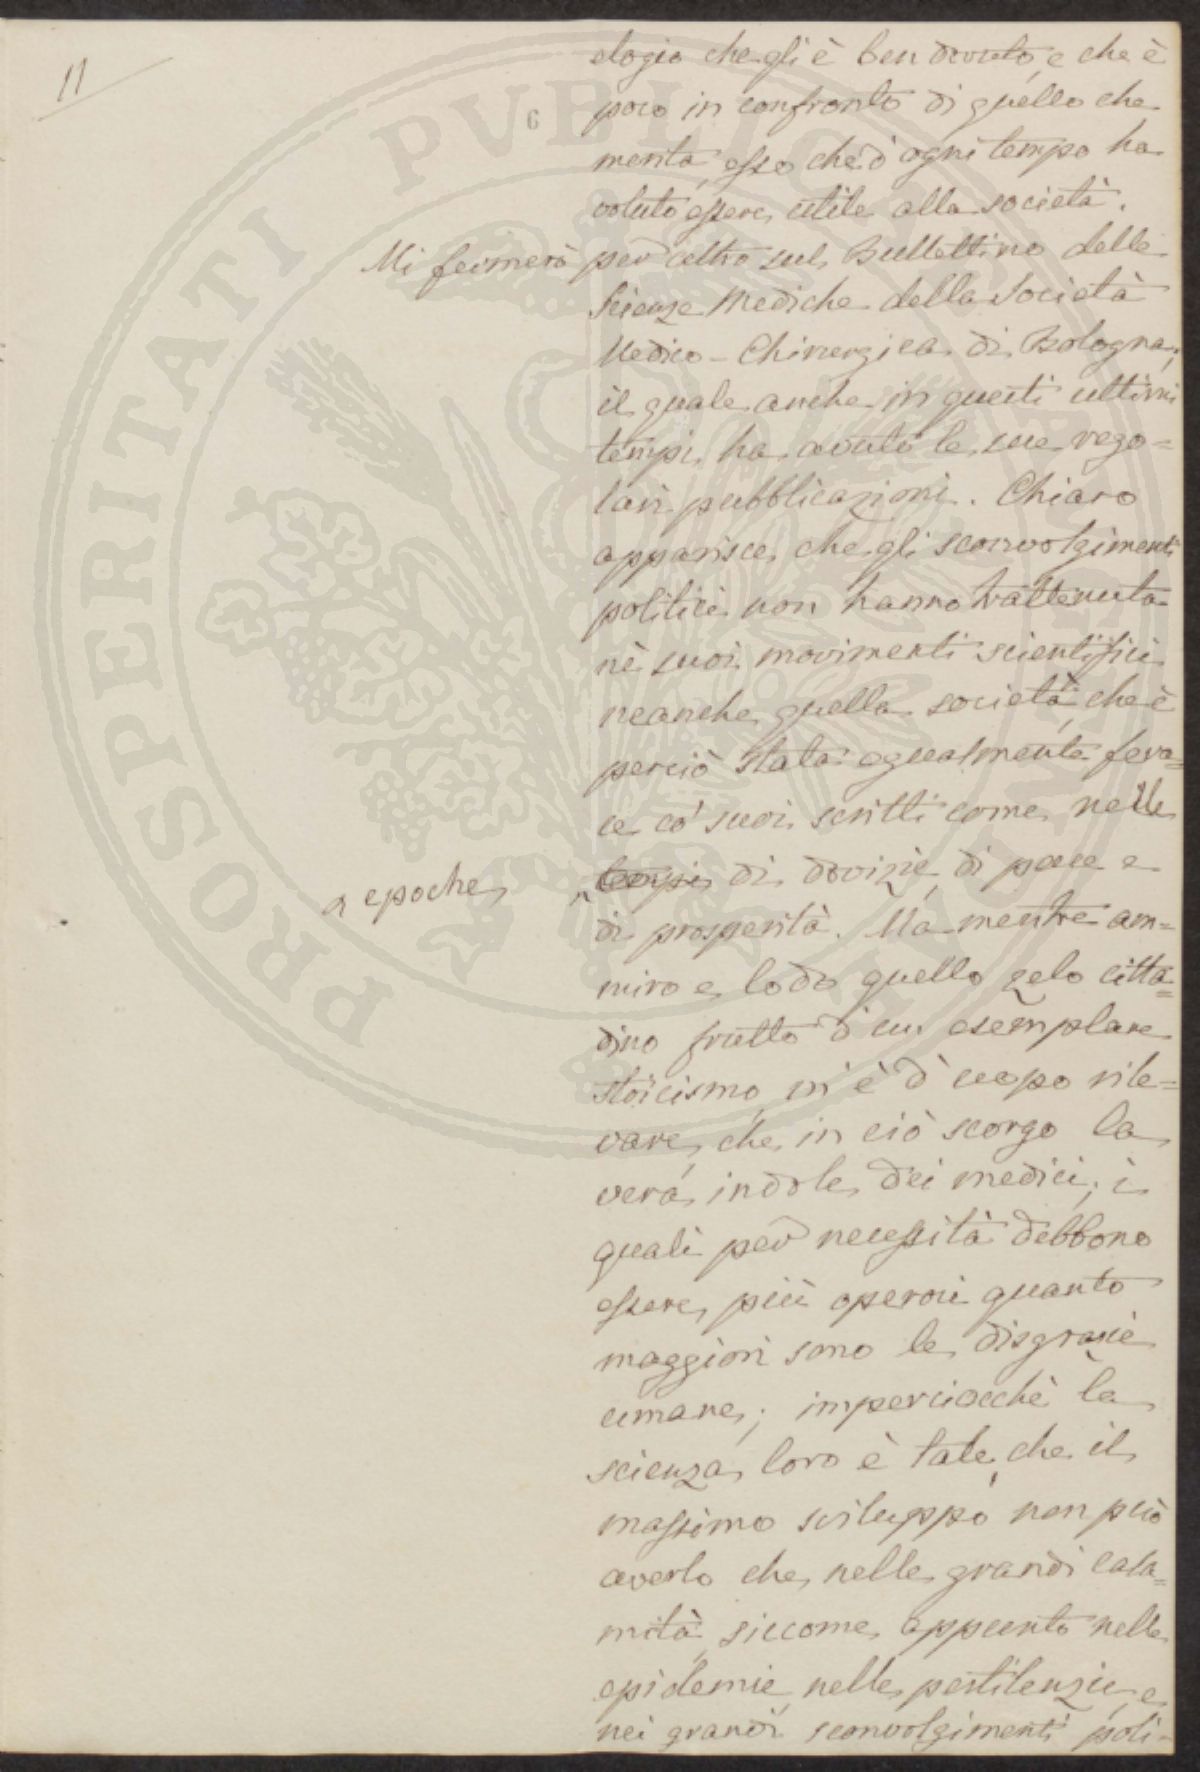 11
6
elogio che gli è ben dovuto, e che è
poco in confronto di quello che
merita, esso che d'ogni tempo ha
voluto essere utile alla società.
Mi fermerò per altro sul Bullettino delle
Scienze Mediche della Società
Medico-Chirurgica di Bologna;
il quale anche in questi ultimi
tempi ha avuto le sue rego=
lari pubblicazioni. Chiaro
apparisce che gli sconvolgimenti
politici non hanno trattenuta
nè suoi movimenti scientifici
neanche quella società, che è
perciò stata egualmente fera=
ce co' suoi scritti come nelle
a epoche a tempi di dovizie, di pace e
di prosperità. Ma mentre am=
miro e lodo quello zelo citta=
dino frutto d'un esemplare
stoicismo, m'è d'uopo rile=
vare, che in ciò scorgo la
vera indole dei medici; i
quali per necessità debbono
essere più operosi quanto
maggiori sono le disgrazie
umane; imperciocchè la
scienza loro è tale, che il
massimo sviluppo non può
averlo che nelle grandi cala=
mità, siccome appunto nelle
epidemie, nelle pestilenzie, e
nei grandi sconvolgimenti poli-
PROSPERITATI PUBLICAE